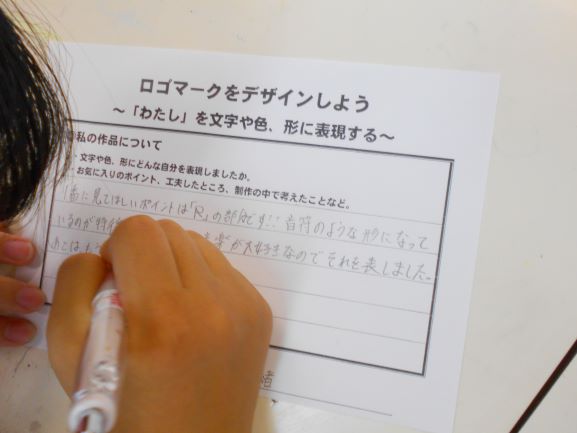 ロゴマークをデザインしよう
～「わたし」を文字や色、形に表現する～
私の作品について
・文字や色、形にどんな自分を表現しましたか。
・お気に入りのポイント、工夫したところ、制作の中で考えたことなど。
1番に見てほしいポイントは「R」の部分です!! 音符のような形になって
いるのが特徴
が大好きなのでそれを表しました。